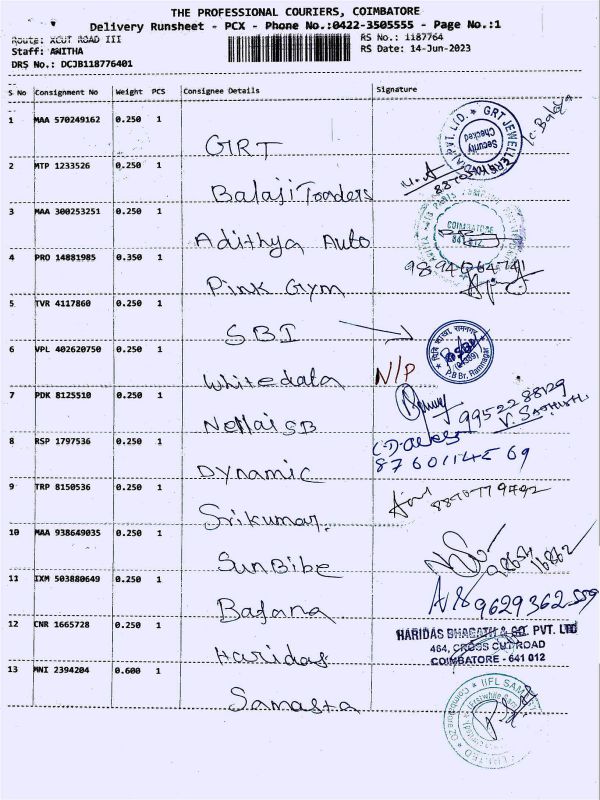 THE PROFESSIONAL COURIERS, COIMBATORE
Delivery Runsheet - PCX - Phone No.:0422-3505555 - Page No.:1
Route: XCUT ROAD III
RS No.: 1187764
Staff: ANITHA
RS Date: 14-Jun-2023
DRS No.: DCJB118776401
S No Consignment No Weight PCS Consignee Details Signature
1 MAA 570249162 0.250 1
GRT
GRT JEWELLERS
PVT. LTD.
Security
Checked
2 MTP 1233526 0.250 1
Balaji Traders
3 MAA 300253251 0.250 1
Adithya Auto
COIMBATORE
641 012
4 PRO 14881985 0.350 1
Pink Gym
5 TVR 4117860 0.250 1
SBI
P.B Br. Ramnagar
6 VPL 402620750 0.250 1
Whitedata
N/P
7 PDK 8125510 0.250 1
Nellai SB
9952288129
8 RSP 1797536 0.250 1
Dynamic
8760114569
9 TRP 8150536 0.250 1
Srikumar.
10 MAA 938649035 0.250 1
SunBibe
11 IXM 503880649 0.250 1
Bafana
9629362559
12 CNR 1665728 0.250 1
Haridas
HARIDAS BHAGATH & CO. PVT. LTD
464, CROSS CUT ROAD
COIMBATORE - 641 012
13 MNI 2394204 0.600 1
Samasta
IIFL